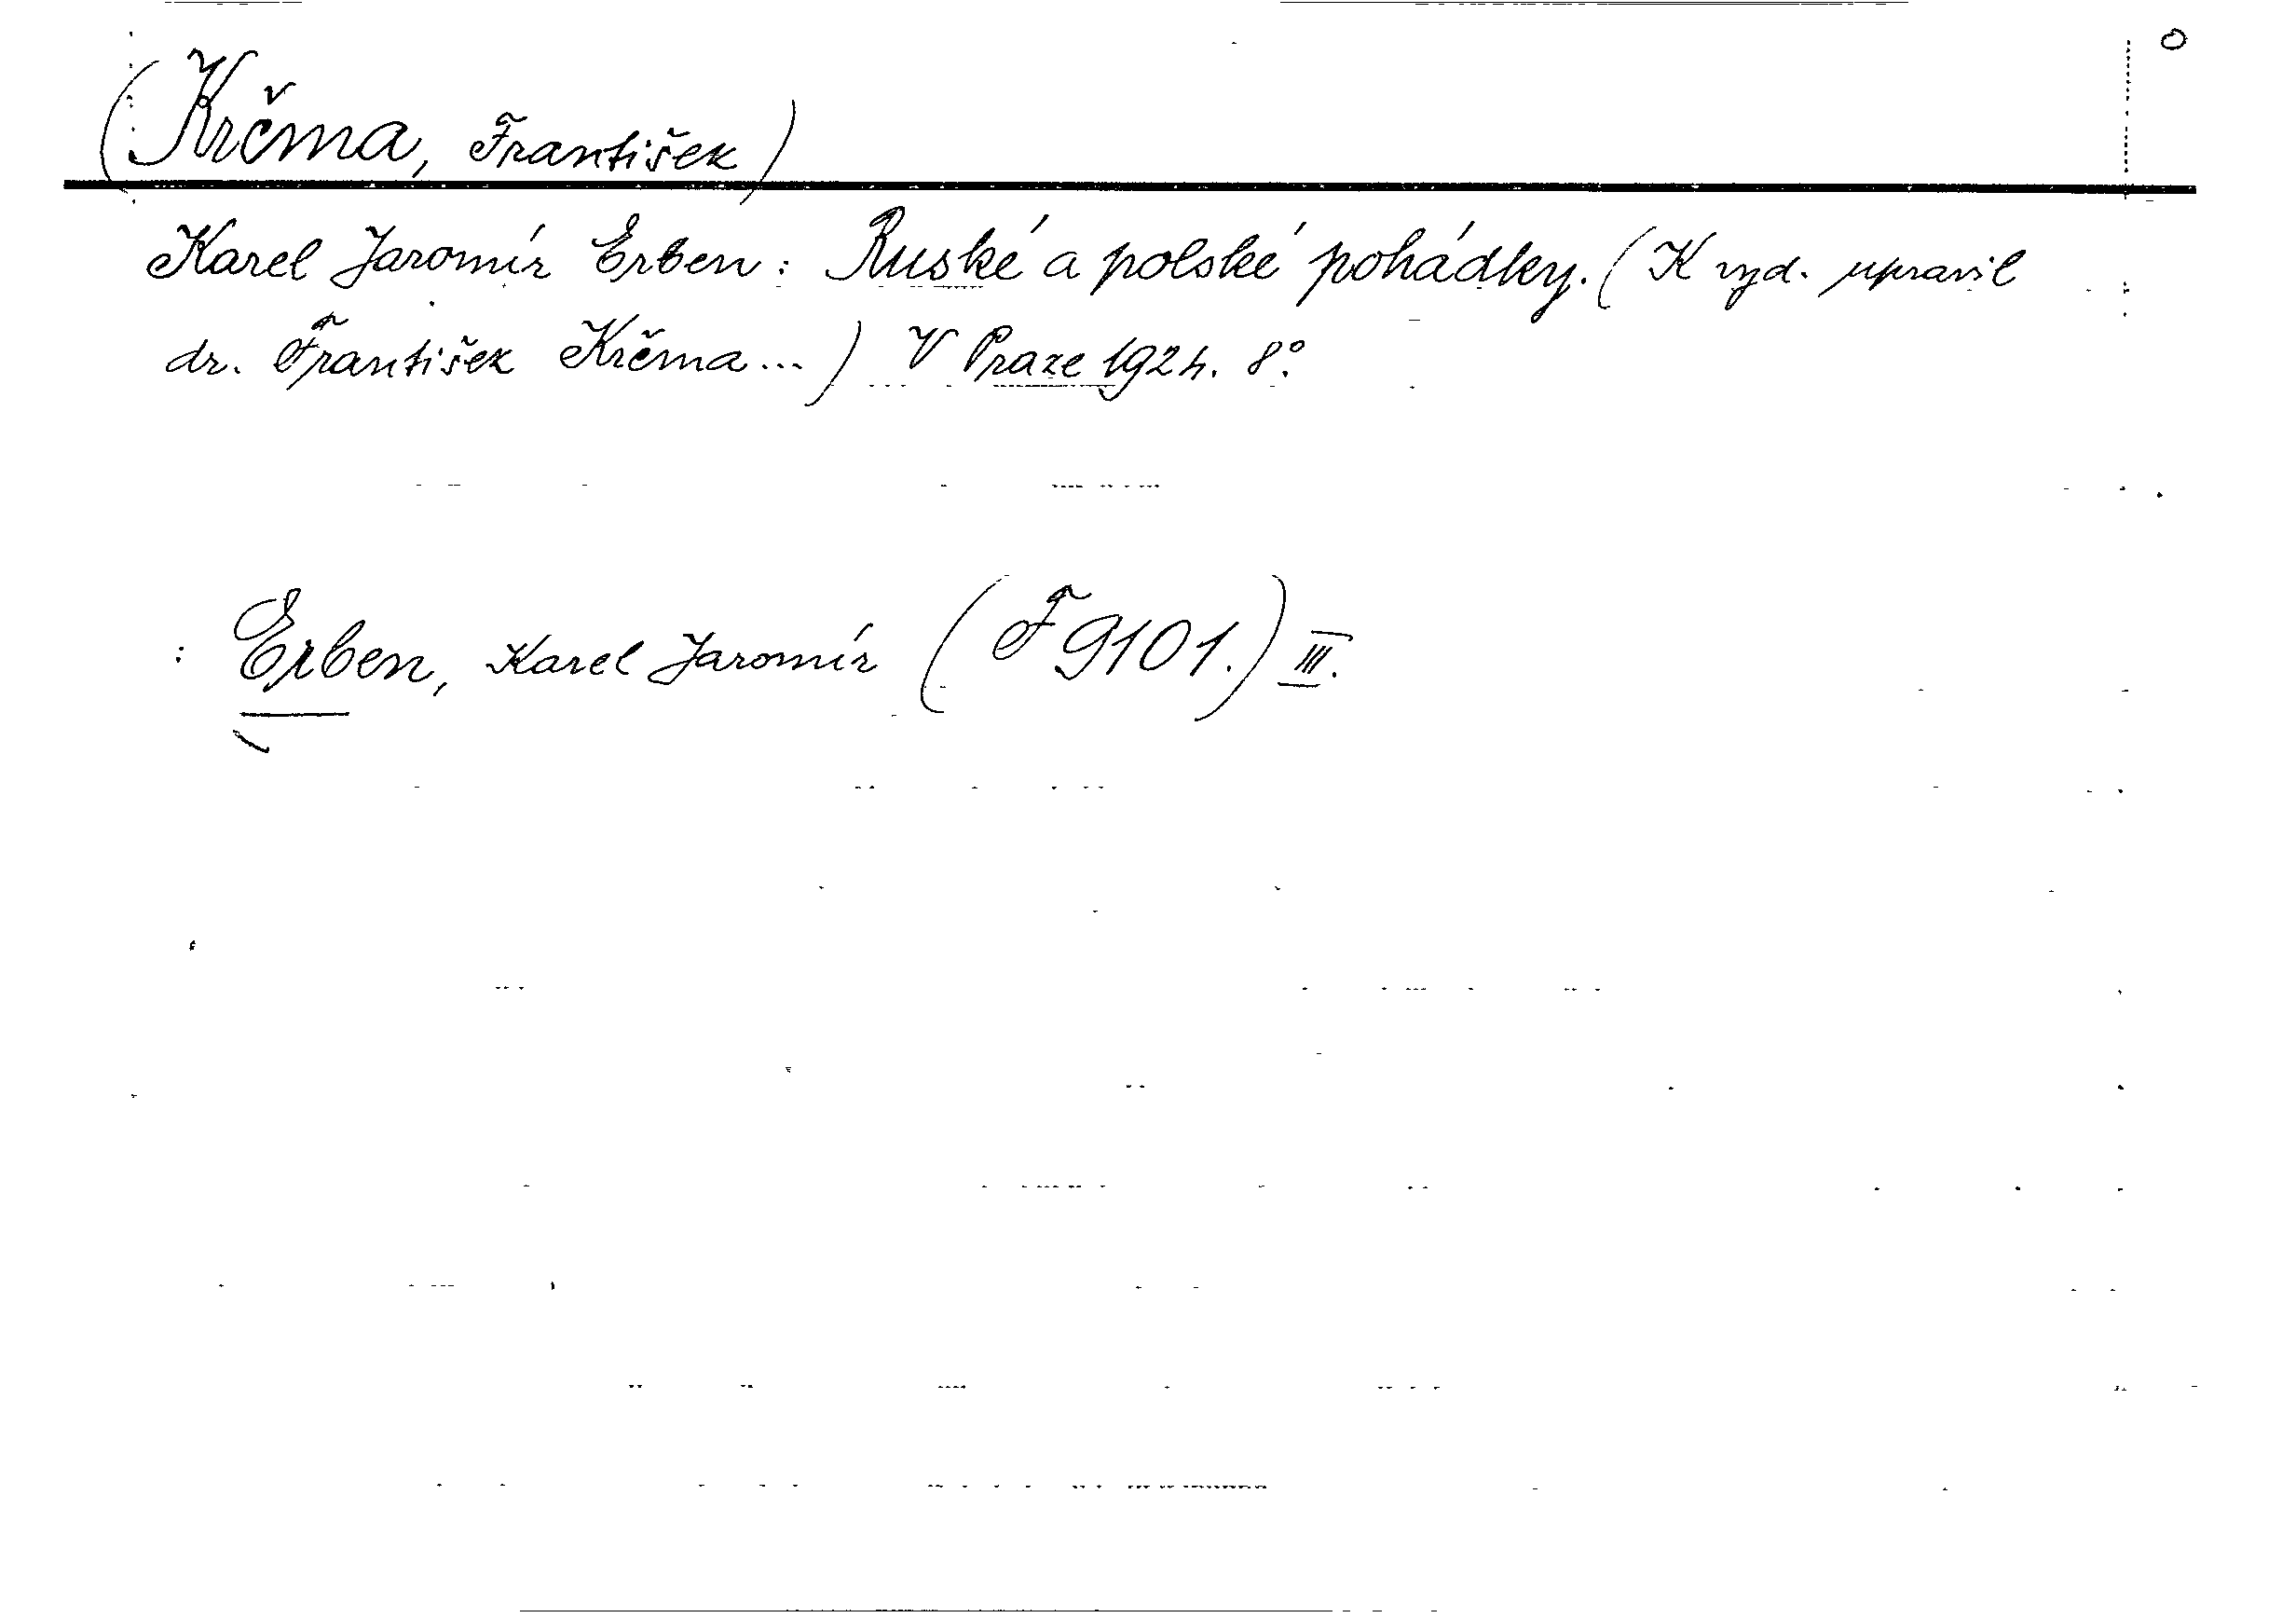 (Krčma, František)
Karel Jaromír Erben: Ruské a polské pohádky. (K vyd. upravil
dr. František Krčma...) V Praze 1924. 8°.
: Erben, Karel Jaromír (F 9101.) III.